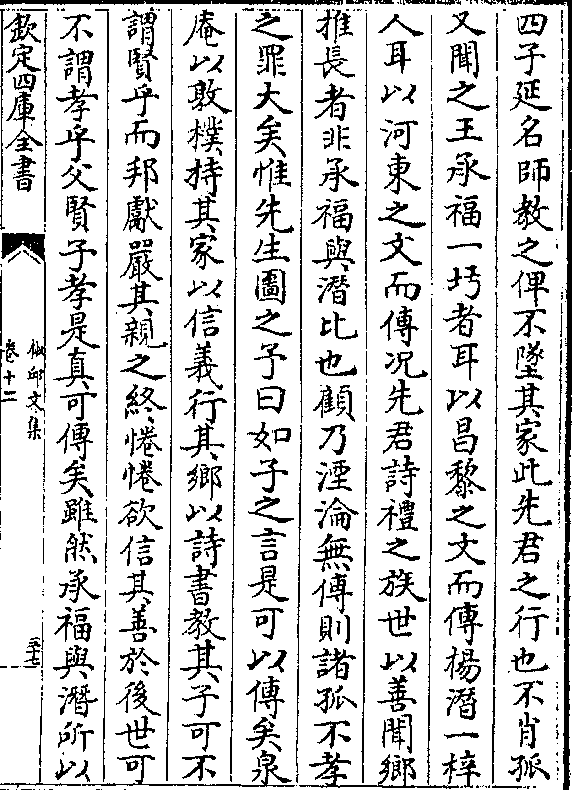 四子延名師教之俾不墜其家此先君之行也不肖孤
又聞之王承福一圬者耳以昌黎之文而傳楊潛一梓
人耳以河東之文而傳况先君詩禮之族世以善聞鄉
推長者非承福與潛比也顧乃湮淪無傳則諸孤不孝
之罪大矣惟先生圖之予曰如子之言是可以傳矣泉
庵以敦樸持其家以信義行其鄉以詩書教其子可不
謂賢乎而邦獻嚴其親之終惓惓欲信其善於後世可
不謂孝乎父賢子孝是真可傳矣雖然承福與潛所以
欽定四庫全書
椒邱文集
卷十二